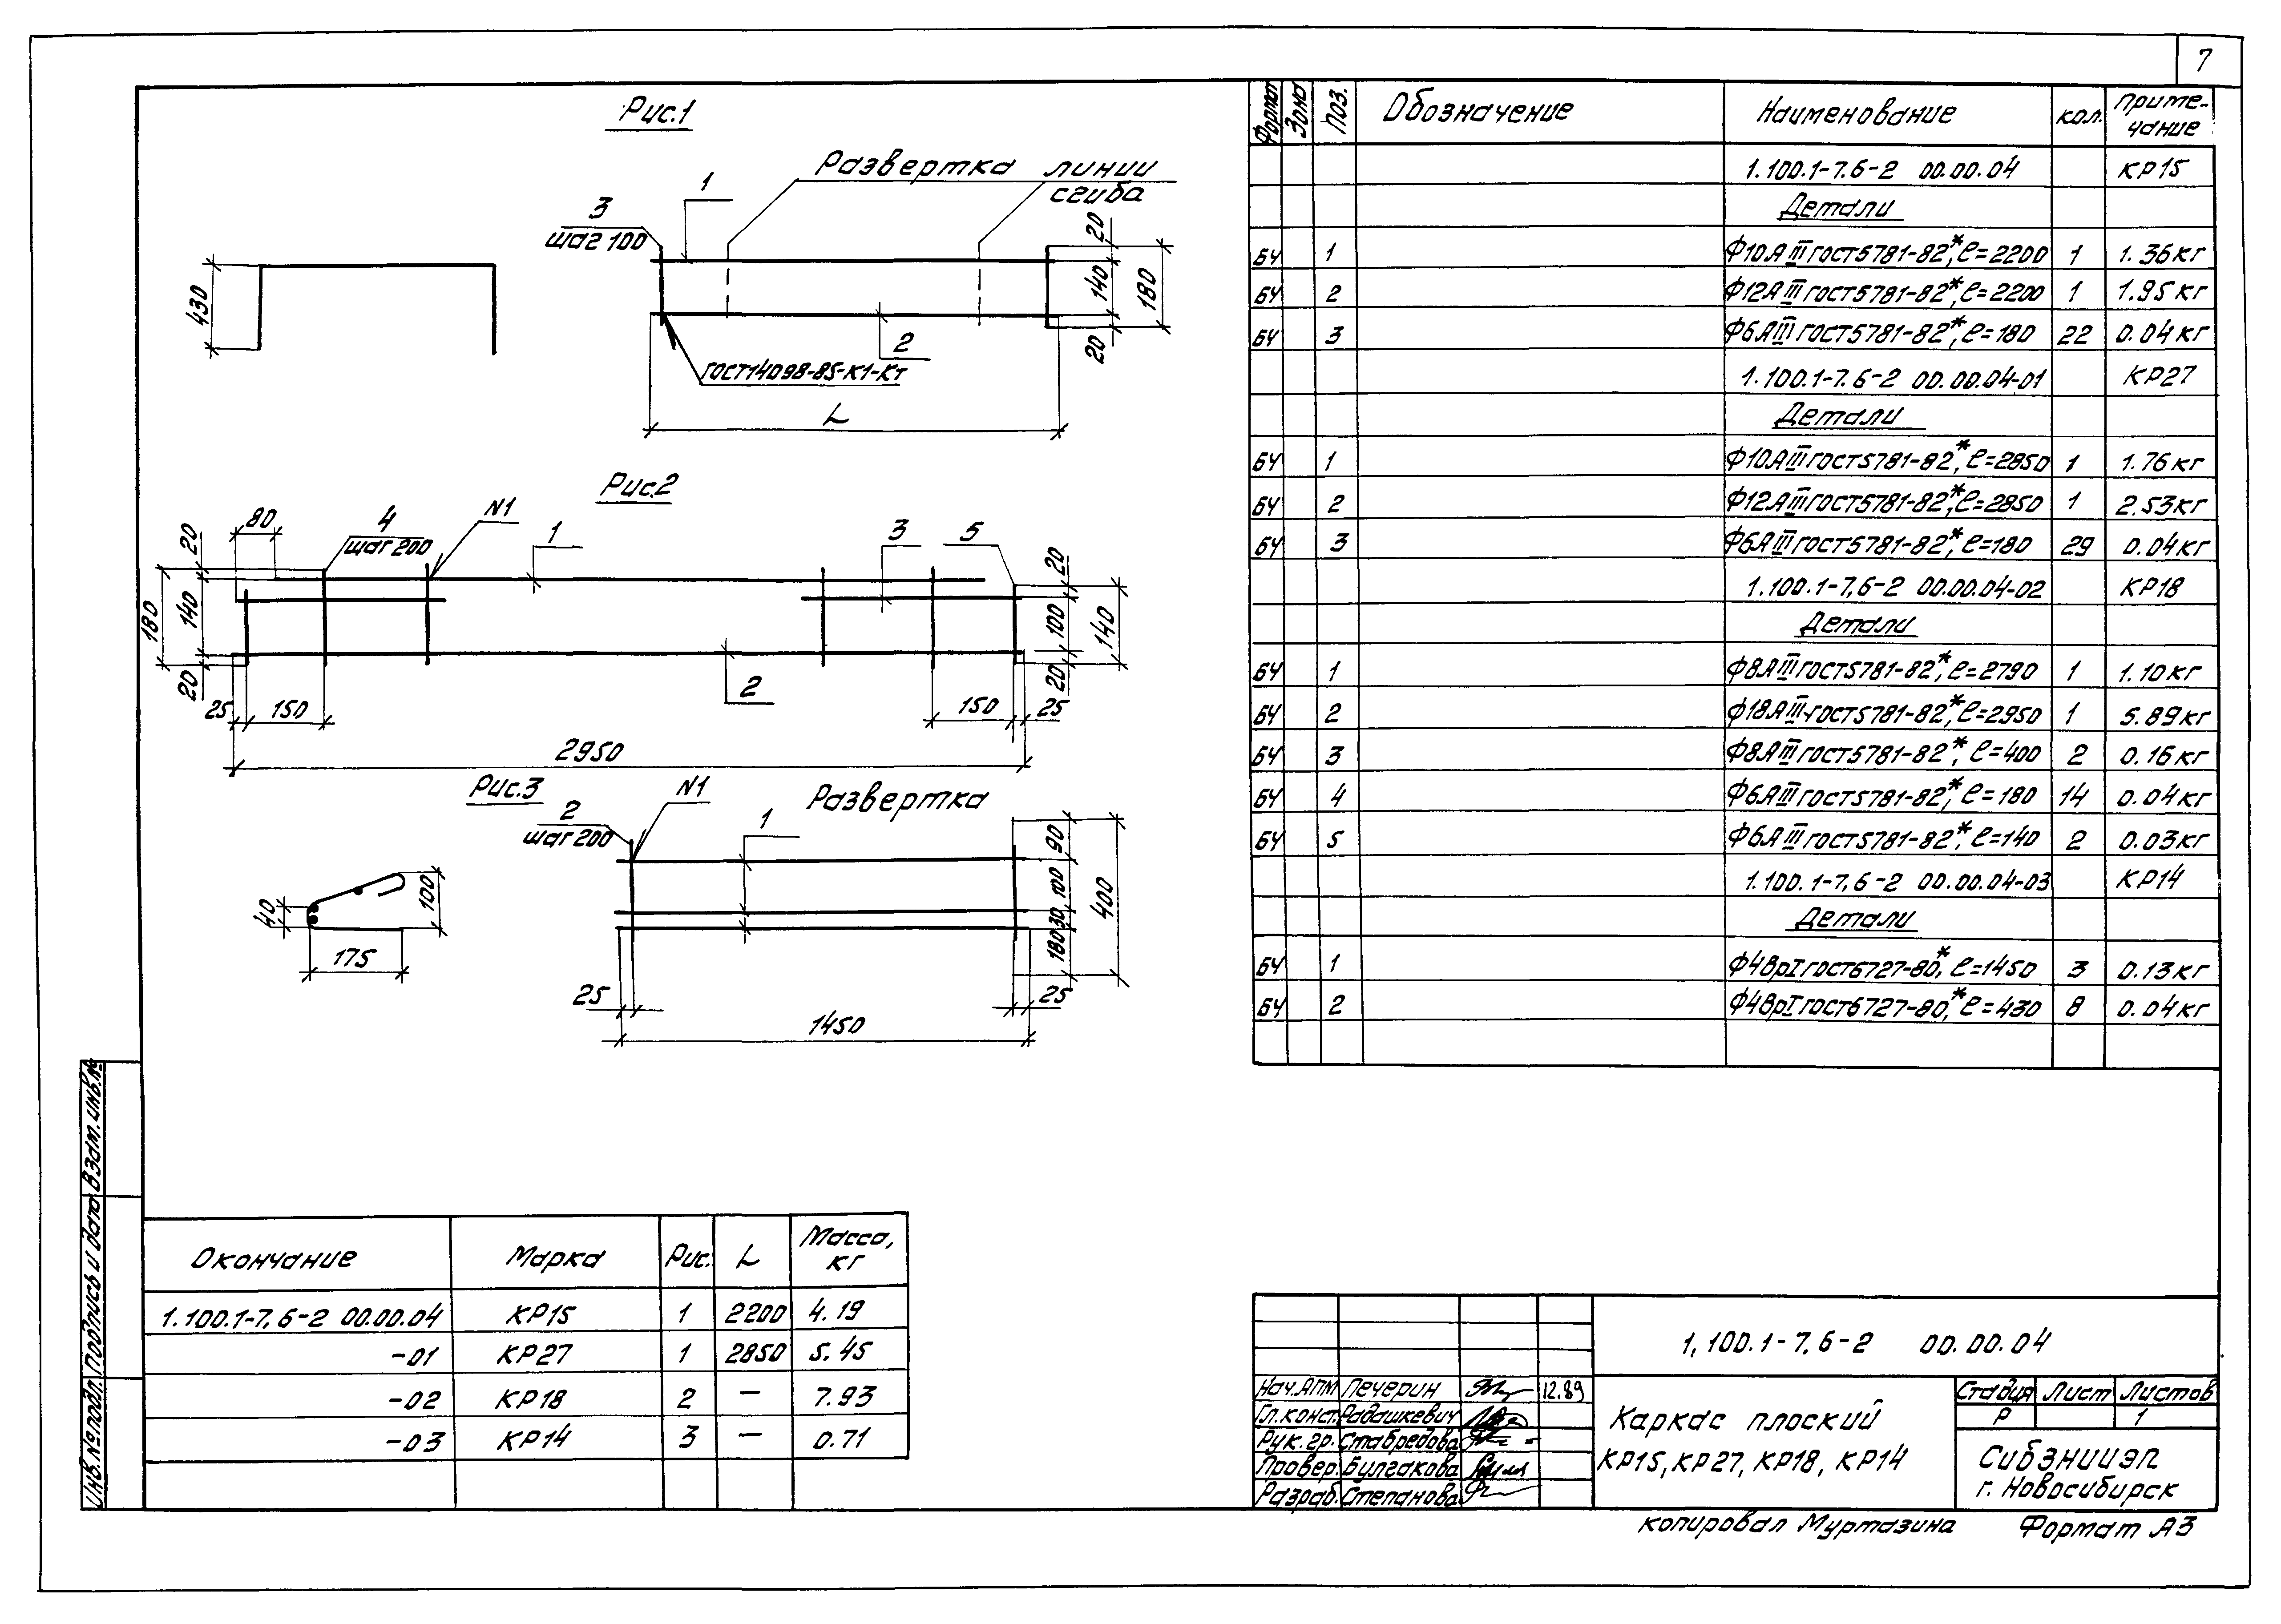 7
Рис.1
Развертка линии сгиба
1
3
шаг 100
430
20
140
180
20
2
ГОСТ14098-85-К1-Кт
L
Рис.2
80
4
шаг 200
N1
1
3
5
20
180
140
20
20
100
140
20
2
25
150
150
25
2950
Рис.3
N1
Развертка
2
шаг 200
1
90
100
400
30
180
40
100
175
25
25
1450
Формат Зона Поз. Обозначение Наименование кол. Примечание
1.100.1-7.6-2 00.00.04 КР15
Детали
БЧ 1 Ф10АIII ГОСТ5781-82*, ℓ=2200 1 1.36кг
БЧ 2 Ф12АIII ГОСТ5781-82*, ℓ=2200 1 1.95кг
БЧ 3 Ф6АIII ГОСТ5781-82*, ℓ=180 22 0.04кг
1.100.1-7.6-2 00.00.04-01 КР27
Детали
БЧ 1 Ф10АIII ГОСТ5781-82*, ℓ=2850 1 1.76кг
БЧ 2 Ф12АIII ГОСТ5781-82*, ℓ=2850 1 2.53кг
БЧ 3 Ф6АIII ГОСТ5781-82*, ℓ=180 29 0.04кг
1.100.1-7.6-2 00.00.04-02 КР18
Детали
БЧ 1 Ф8АIII ГОСТ5781-82*, ℓ=2790 1 1.10кг
БЧ 2 Ф18АIII ГОСТ5781-82*, ℓ=2950 1 5.89кг
БЧ 3 Ф8АIII ГОСТ5781-82*, ℓ=400 2 0.16кг
БЧ 4 Ф6АIII ГОСТ5781-82*, ℓ=180 14 0.04кг
БЧ 5 Ф6АIII ГОСТ5781-82*, ℓ=140 2 0.03кг
1.100.1-7.6-2 00.00.04-03 КР14
Детали
БЧ 1 Ф4ВрI ГОСТ6727-80*, ℓ=1450 3 0.13кг
БЧ 2 Ф4ВрI ГОСТ6727-80*, ℓ=430 8 0.04кг
Окончание Марка Рис. L Масса, кг
1.100.1-7.6-2 00.00.04 КР15 1 2200 4.19
-01 КР27 1 2850 5.45
-02 КР18 2 — 7.93
-03 КР14 3 — 0.71
Инв.№ подл. Подпись и дата Взам.инв.№
1.100.1-7.6-2 00.00.04
Нач.АПМ Печерин 12.89
Гл.конст. Радашкевич
Рук.гр. Стабредова
Провер. Булгакова
Разраб. Степанова
Каркас плоский
КР15, КР27, КР18, КР14
Стадия Лист Листов
Р 1
СибЗНИИЭП
г. Новосибирск
копировал Муртазина Формат А3